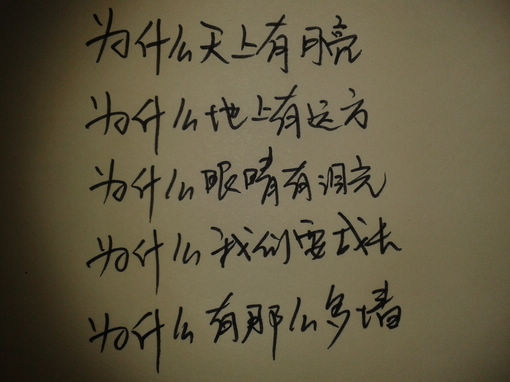 为什么天上有月亮
为什么地上有远方
为什么眼睛有泪光
为什么我们要成长
为什么有那么多墙